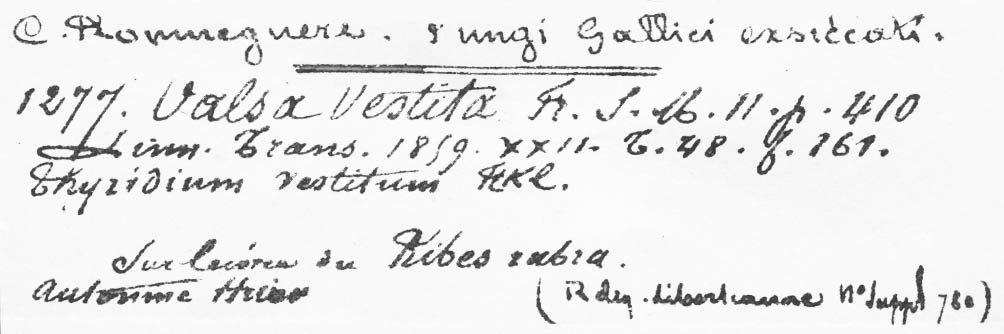 C. Roumeguere. Fungi Gallici exsiccati.
1277. Valsa Vestita Fr. S. M. II. p. 410
Linn. Trans. 1859. XXII. T. 48. f. 161.
Thyridium vestitum FKL.
Sur l'écorce du Ribes rubra.
Automne Hiver
(Reliq. Libertianae No Suppl 780)